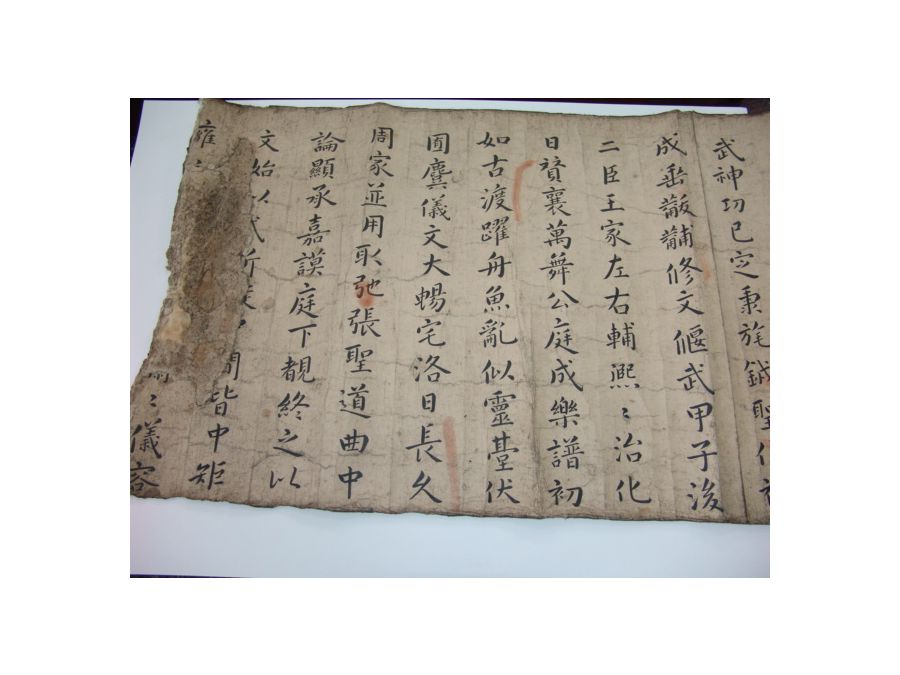 武神功已定秉旄鉞聖化
成垂黻黼修文偃武甲子後
二臣王家左右輔熙〻治化
日賛襄萬舞公庭成樂譜初
如古渡躍舟魚亂似靈臺伏
囿麌儀文大暢宅洛日長久
周家並用取弛張聖道曲中
論顯承嘉謨庭下覩終之以
文始以武折旋間皆中矩
雍〻〻儀容